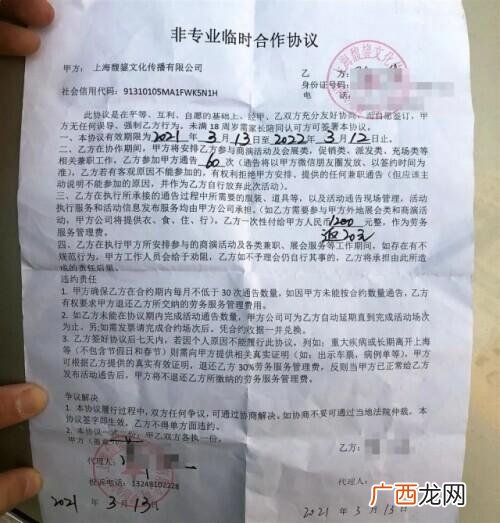 非专业临时合作协议
甲方：上海馥鋆文化传播有限公司
乙方：
社会信用代码：91310105MA1FWK5N1H
身份证号码：
电话：
此协议是在平等、互利、自愿的基础上，经甲、乙双方充分友好协商，而自愿签订，甲
方无任何误导、强制乙方行为，未满 18 周岁需家长陪同认可方可签署本协议。
一、本协议有效期限为 2021 年 3 月 13 日至 2022 年 3 月 12 日止。
二、在协作期间，甲方将安排乙方参与商演活动及会展类、促销类、派发类、充场类等
相关兼职工作，乙方参加甲方通告 60 次（通告将以甲方微信朋友圈发放、以签约时间为
准），乙方若有客观原因不能参加的，有权利拒绝甲方安排，提供的任何兼职通告（但应该主
动说明不能参加的原因，并作为乙方自行放弃此次活动）。
三、乙方在执行所承接的通告过程中所需要的服装、道具等，以及活动通告现场管理，活动
执行服务和活动信息发布服务均由甲方公司承担。（如乙方需要参与甲方外地展会类和商演活
动，甲方公司将提供衣、食、住、行），乙方一次性付给甲方人民币 1200 元整，作为劳务
服务管理费。
返20元
四、乙方在执行甲方所安排参与的商演活动及各类兼职、展会服务等工作期间，如存在有不
规范行为，甲方工作人员会给予劝阻，乙方如不予理会仍自行其事的，乙方将承担由此所造
成的责任后果。
违约责任
1. 甲方确保乙方在合约期内每月不低于 30 次通告数量，如因甲方未能按合约数量通告，乙方
有权要求甲方退还乙方所交纳的劳务服务管理费用。
2. 如乙方未能在协议期内完成活动通告数量，甲方公司可为乙方自动延期直到完成活动场次
为止，另:如需发票请完成合约场次后，凭合约收据一并兑换。
3. 乙方签好协议后七天内，若因个人原因不能履行此协议，列如：重大疾病或长期离开上海
等（不包含节假日和春节）则需向甲方提供相关真实证明（如：出示车票，病例单等），甲方
可根据乙方提供的真实有效证明，退还乙方 30%劳务服务管理费，反则当甲方已正常给乙方
发布活动通告后，甲方将不退还乙方所缴纳的劳务服务管理费。
争议解决
1. 本协议履行过程中，双方任何争议，可通过协商解决。如协商不妥可通过当地法院仲裁。本
协议签字即生效，乙方不得单方面违约。
2. 本协议一式二份，甲乙双方各执一份。
甲方（盖章）
乙方：
代理人：
投诉电话：13248102228
2021 年 3 月 13 日
2021 年 3 月 13 日
广西龙网